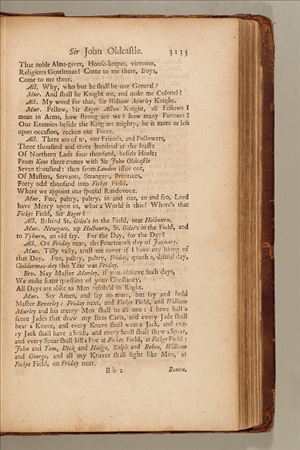 Sir John Oldcastle. 3135
That noble Alms-giver, House-keeper, virtuous,
Religious Gentleman? Come to me there, Boys,
Come to me there.
Act. Why, who but he shall be our General?
Mur. And shall he Knight me, and make me Colonel?
Act. My word for that, Sir William Murley Knight.
Mur. Fellow, Sir Roger Acton Knight, all Fellows I
mean in Arms, how strong are we? how many Partners?
Our Enemies beside the King are mighty, be it more or less
upon occasion, reckon our Force.
Act. There are of us, our Friends, and Followers,
Three thousand and three hundred at the least;
Of Northern Lads four thousand, beside Horse;
From Kent there comes with Sir John Oldcastle
Seven thousand: then from London issue out,
Of Masters, Servants, Strangers, Prentices,
Forty odd thousand into Ficket Field,
Where we appoint our special Randevouz.
Mur. Fue, paltry, paltry, in and out, to and fro, Lord
have Mercy upon us, what a World is this? Where's that
Ficket Field, Sir Roger?
Act. Behind St. Giles's in the Field, near Holbourn.
Mur. Newgate, up Holbourn, St. Giles's in the Field, and
to Tyburn, an old say. For the Day, for the Day?
Act. On Friday next, the Fourteenth day of January.
Mur. Tilly vally, trust me never if I have any liking of
that Day. Fue, paltry, paltry, Friday, quoth-a, dismal day,
Childermas-day this Year was Friday.
Bev. Nay Master Murley, if you observe such days,
We make some question of your Constancy,
All Days are alike to Men resolv'd in Right.
Mur. Say Amen, and say no more, but say and hold
Master Beverley: Friday next, and Ficket Field, and William
Murley and his merry Men shall be all one: I have half a
score Jades that draw my Beer Carts, and every Jade shall
bear a Knave, and every Knave shall wear a Jack, and eve-
ry Jack shall have a Scull, and every Scull shall shew a Spear,
and every Spear shall kill a Foe at Ficket Field, at Ficket Field:
John and Tom, Dick and Hodge, Ralph and Robin, William
and George, and all my Knaves shall fight like Men, at
Ficket Field, on Friday next.
B b 2